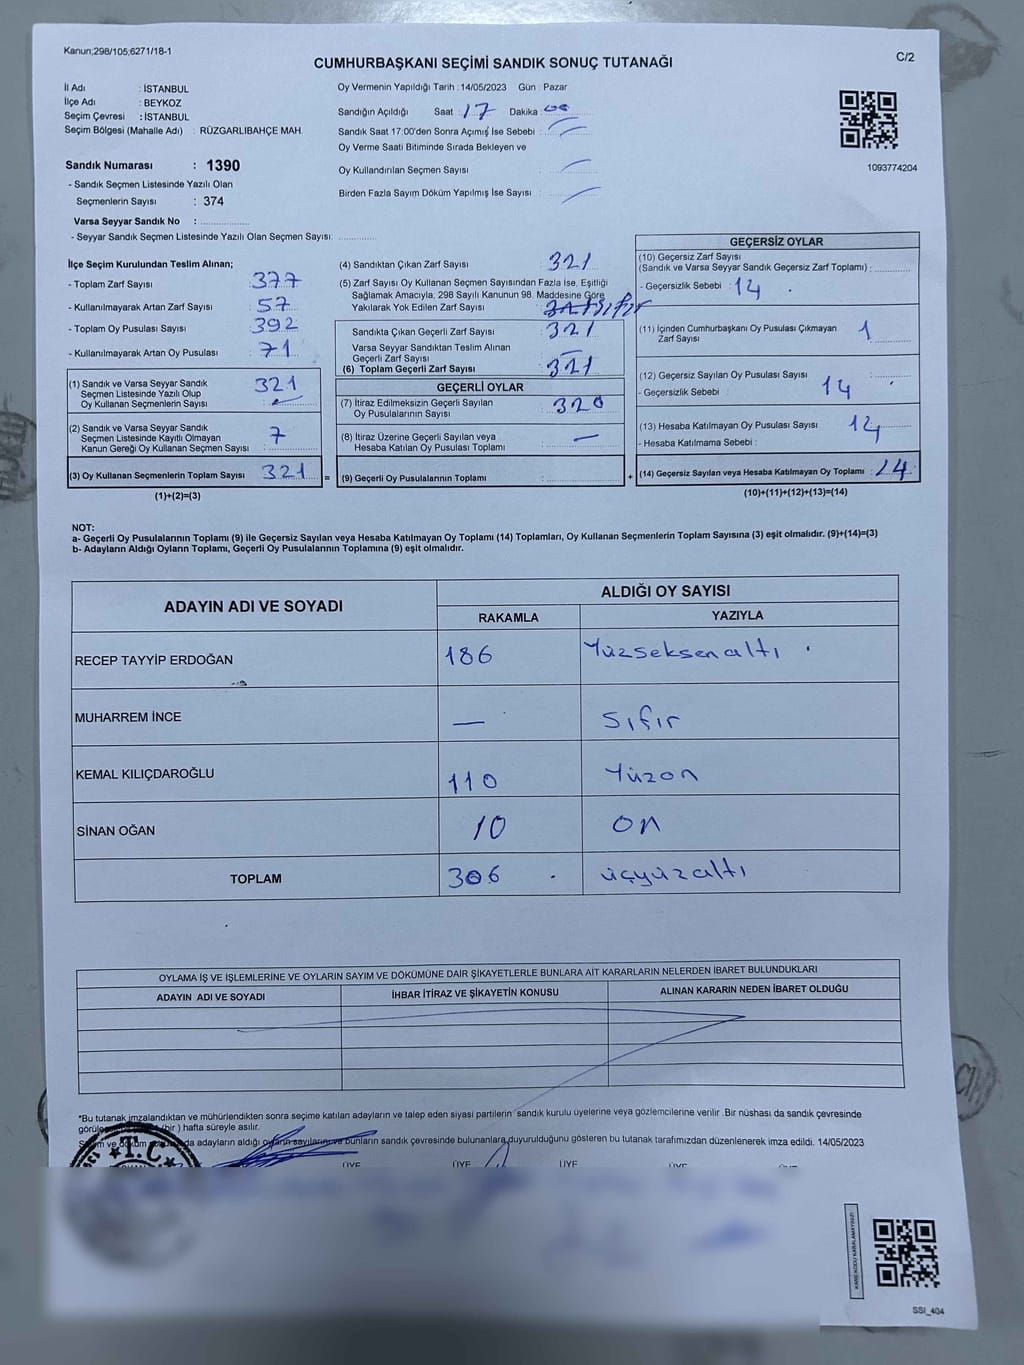 Kanun;298/105;6271/18-1
CUMHURBAŞKANI SEÇİMİ SANDIK SONUÇ TUTANAĞI
C/2
İl Adı : İSTANBUL
İlçe Adı : BEYKOZ
Seçim Çevresi : İSTANBUL
Seçim Bölgesi (Mahalle Adı) : RÜZGARLIBAHÇE MAH.
Sandık Numarası : 1390
- Sandık Seçmen Listesinde Yazılı Olan
Seçmenlerin Sayısı : 374
Varsa Seyyar Sandık No :
- Seyyar Sandık Seçmen Listesinde Yazılı Olan Seçmen Sayısı:
Oy Vermenin Yapıldığı Tarih : 14/05/2023 Gün : Pazar
Sandığın Açıldığı Saat : 17 Dakika : 00
Sandık Saat 17:00'den Sonra Açımış İse Sebebi :
Oy Verme Saati Bitiminde Sırada Bekleyen ve
Oy Kullandırılan Seçmen Sayısı :
Birden Fazla Sayım Döküm Yapılmış İse Sayısı :
1093774204
İlçe Seçim Kurulundan Teslim Alınan;
- Toplam Zarf Sayısı : 377
- Kullanılmayarak Artan Zarf Sayısı : 57
- Toplam Oy Pusulası Sayısı : 392
- Kullanılmayarak Artan Oy Pusulası : 71
(1) Sandık ve Varsa Seyyar Sandık
Seçmen Listesinde Yazılı Olup
Oy Kullanan Seçmenlerin Sayısı : 321
(2) Sandık ve Varsa Seyyar Sandık
Seçmen Listesinde Kayıtlı Olmayan
Kanun Gereği Oy Kullanan Seçmen Sayısı : 7
(3) Oy Kullanan Seçmenlerin Toplam Sayısı : 321 =
(1)+(2)=(3)
(4) Sandıktan Çıkan Zarf Sayısı : 321
(5) Zarf Sayısı Oy Kullanan Seçmen Sayısından Fazla İse, Eşitliği
Sağlamak Amacıyla, 298 Sayılı Kanunun 98. Maddesine Göre
Yakılarak Yok Edilen Zarf Sayısı : sıfır
Sandıkta Çıkan Geçerli Zarf Sayısı : 321
Varsa Seyyar Sandıktan Teslim Alınan
Geçerli Zarf Sayısı : –
(6) Toplam Geçerli Zarf Sayısı : 321
GEÇERLİ OYLAR
(7) İtiraz Edilmeksizin Geçerli Sayılan
Oy Pusulalarının Sayısı : 320
(8) İtiraz Üzerine Geçerli Sayılan veya
Hesaba Katılan Oy Pusulası Toplamı : —
(9) Geçerli Oy Pusulalarının Toplamı : +
GEÇERSİZ OYLAR
(10) Geçersiz Zarf Sayısı
(Sandık ve Varsa Seyyar Sandık Geçersiz Zarf Toplamı) :
- Geçersizlik Sebebi : 14
(11) İçinden Cumhurbaşkanı Oy Pusulası Çıkmayan
Zarf Sayısı : 1
(12) Geçersiz Sayılan Oy Pusulası Sayısı :
- Geçersizlik Sebebi : 14
(13) Hesaba Katılmayan Oy Pusulası Sayısı : 14
- Hesaba Katılmama Sebebi :
(14) Geçersiz Sayılan veya Hesaba Katılmayan Oy Toplamı : 14
(10)+(11)+(12)+(13)=(14)
NOT:
a- Geçerli Oy Pusulalarının Toplamı (9) ile Geçersiz Sayılan veya Hesaba Katılmayan Oy Toplamı (14) Toplamları, Oy Kullanan Seçmenlerin Toplam Sayısına (3) eşit olmalıdır. (9)+(14)=(3)
b- Adayların Aldığı Oyların Toplamı, Geçerli Oy Pusulalarının Toplamına (9) eşit olmalıdır.
ADAYIN ADI VE SOYADI ALDIĞI OY SAYISI
RAKAMLA YAZIYLA
RECEP TAYYİP ERDOĞAN 186 Yüzseksenaltı
MUHARREM İNCE — Sıfır
KEMAL KILIÇDAROĞLU 110 Yüzon
SİNAN OĞAN 10 on
TOPLAM 306 üçyüzaltı
OYLAMA İŞ VE İŞLEMLERİNE VE OYLARIN SAYIM VE DÖKÜMÜNE DAİR ŞİKAYETLERLE BUNLARA AİT KARARLARIN NELERDEN İBARET BULUNDUKLARI
ADAYIN ADI VE SOYADI İHBAR İTİRAZ VE ŞİKAYETİN KONUSU ALINAN KARARIN NEDEN İBARET OLDUĞU
*Bu tutanak imzalandıktan ve mühürlendikten sonra seçime katılan adayların ve talep eden siyasi partilerin sandık kurulu üyelerine veya gözlemcilerine verilir .Bir nüshası da sandık çevresinde
(bir ) hafta süreyle asılır.
adayların aldığı oyların sayılarını ve bunların sandık çevresinde bulunanlara duyurulduğunu gösteren bu tutanak tarafımızdan düzenlenerek imza edildi. 14/05/2023
T.C.
ÜYE ÜYE ÜYE ÜYE ÜYE
SSI_404